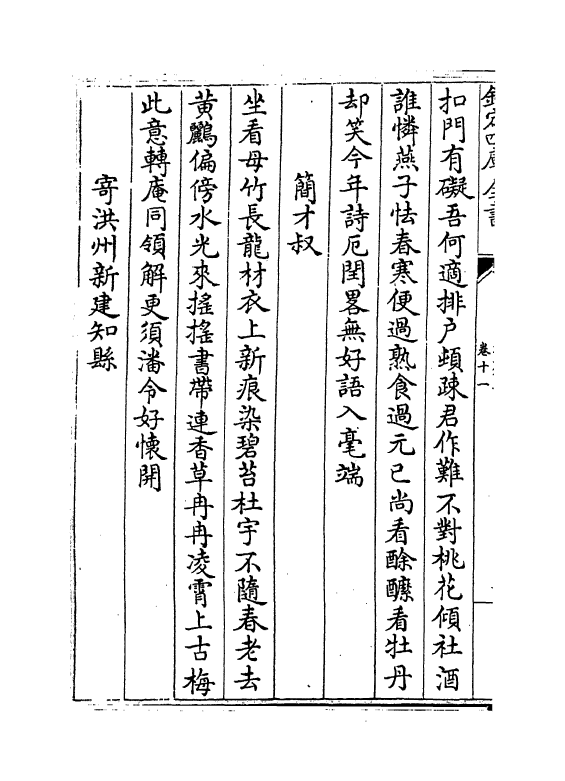 欽定四庫全書
卷十一
扣門有礙吾何適排户頓疎君作難不對桃花傾社酒
誰憐燕子怯春寒便過熟食過元已尚看酴醾看牡丹
却笑今年詩厄閏畧無好語入毫端
簡才叔
坐看母竹長龍材衣上新痕染碧苔杜宇不隨春老去
黄鸝偏傍水光來搖搖書帶連香草冉冉凌霄上古梅
此意轉庵同領解更須潘令好懷開
寄洪州新建知縣